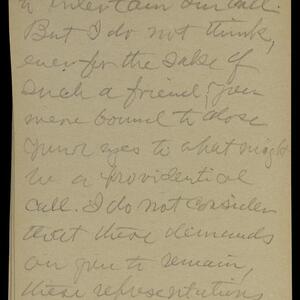 to entertain our call.
But I do not think,
even for the sake of
such a friend, you
were bound to close
your eyes to what might
be a providential
call. I do not consider
that these demands
on you to remain,
these representations